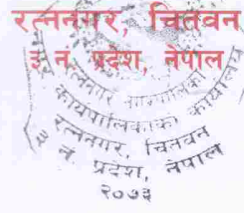 रत्ननगर, चितवन
३ नं. प्रदेश, नेपाल
रत्ननगर नगरपालिका
कार्यपालिकाको कार्यालय
रत्ननगर, चितवन
३ नं. प्रदेश, नेपाल
२०७३